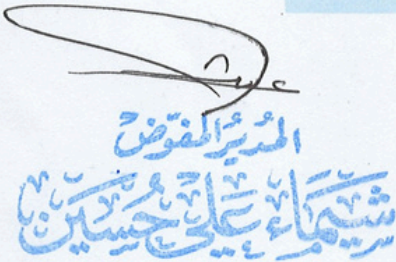 المُديرُ المفوّض
شَيْمَاء عَلي حُسَين